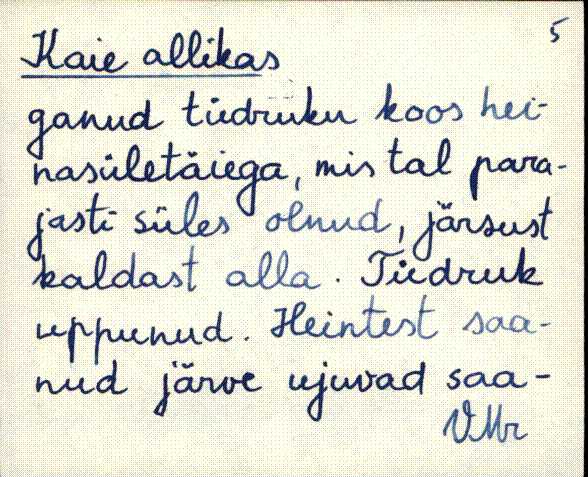 5
Kaie allikas
ganud tüdruku koos hei-
nasületäiega, mis tal para-
jasti süles olnud, järsust
kaldast alla. Tüdruk
uppunud. Heintest saa-
nud järve ujuvad saa-
VMr